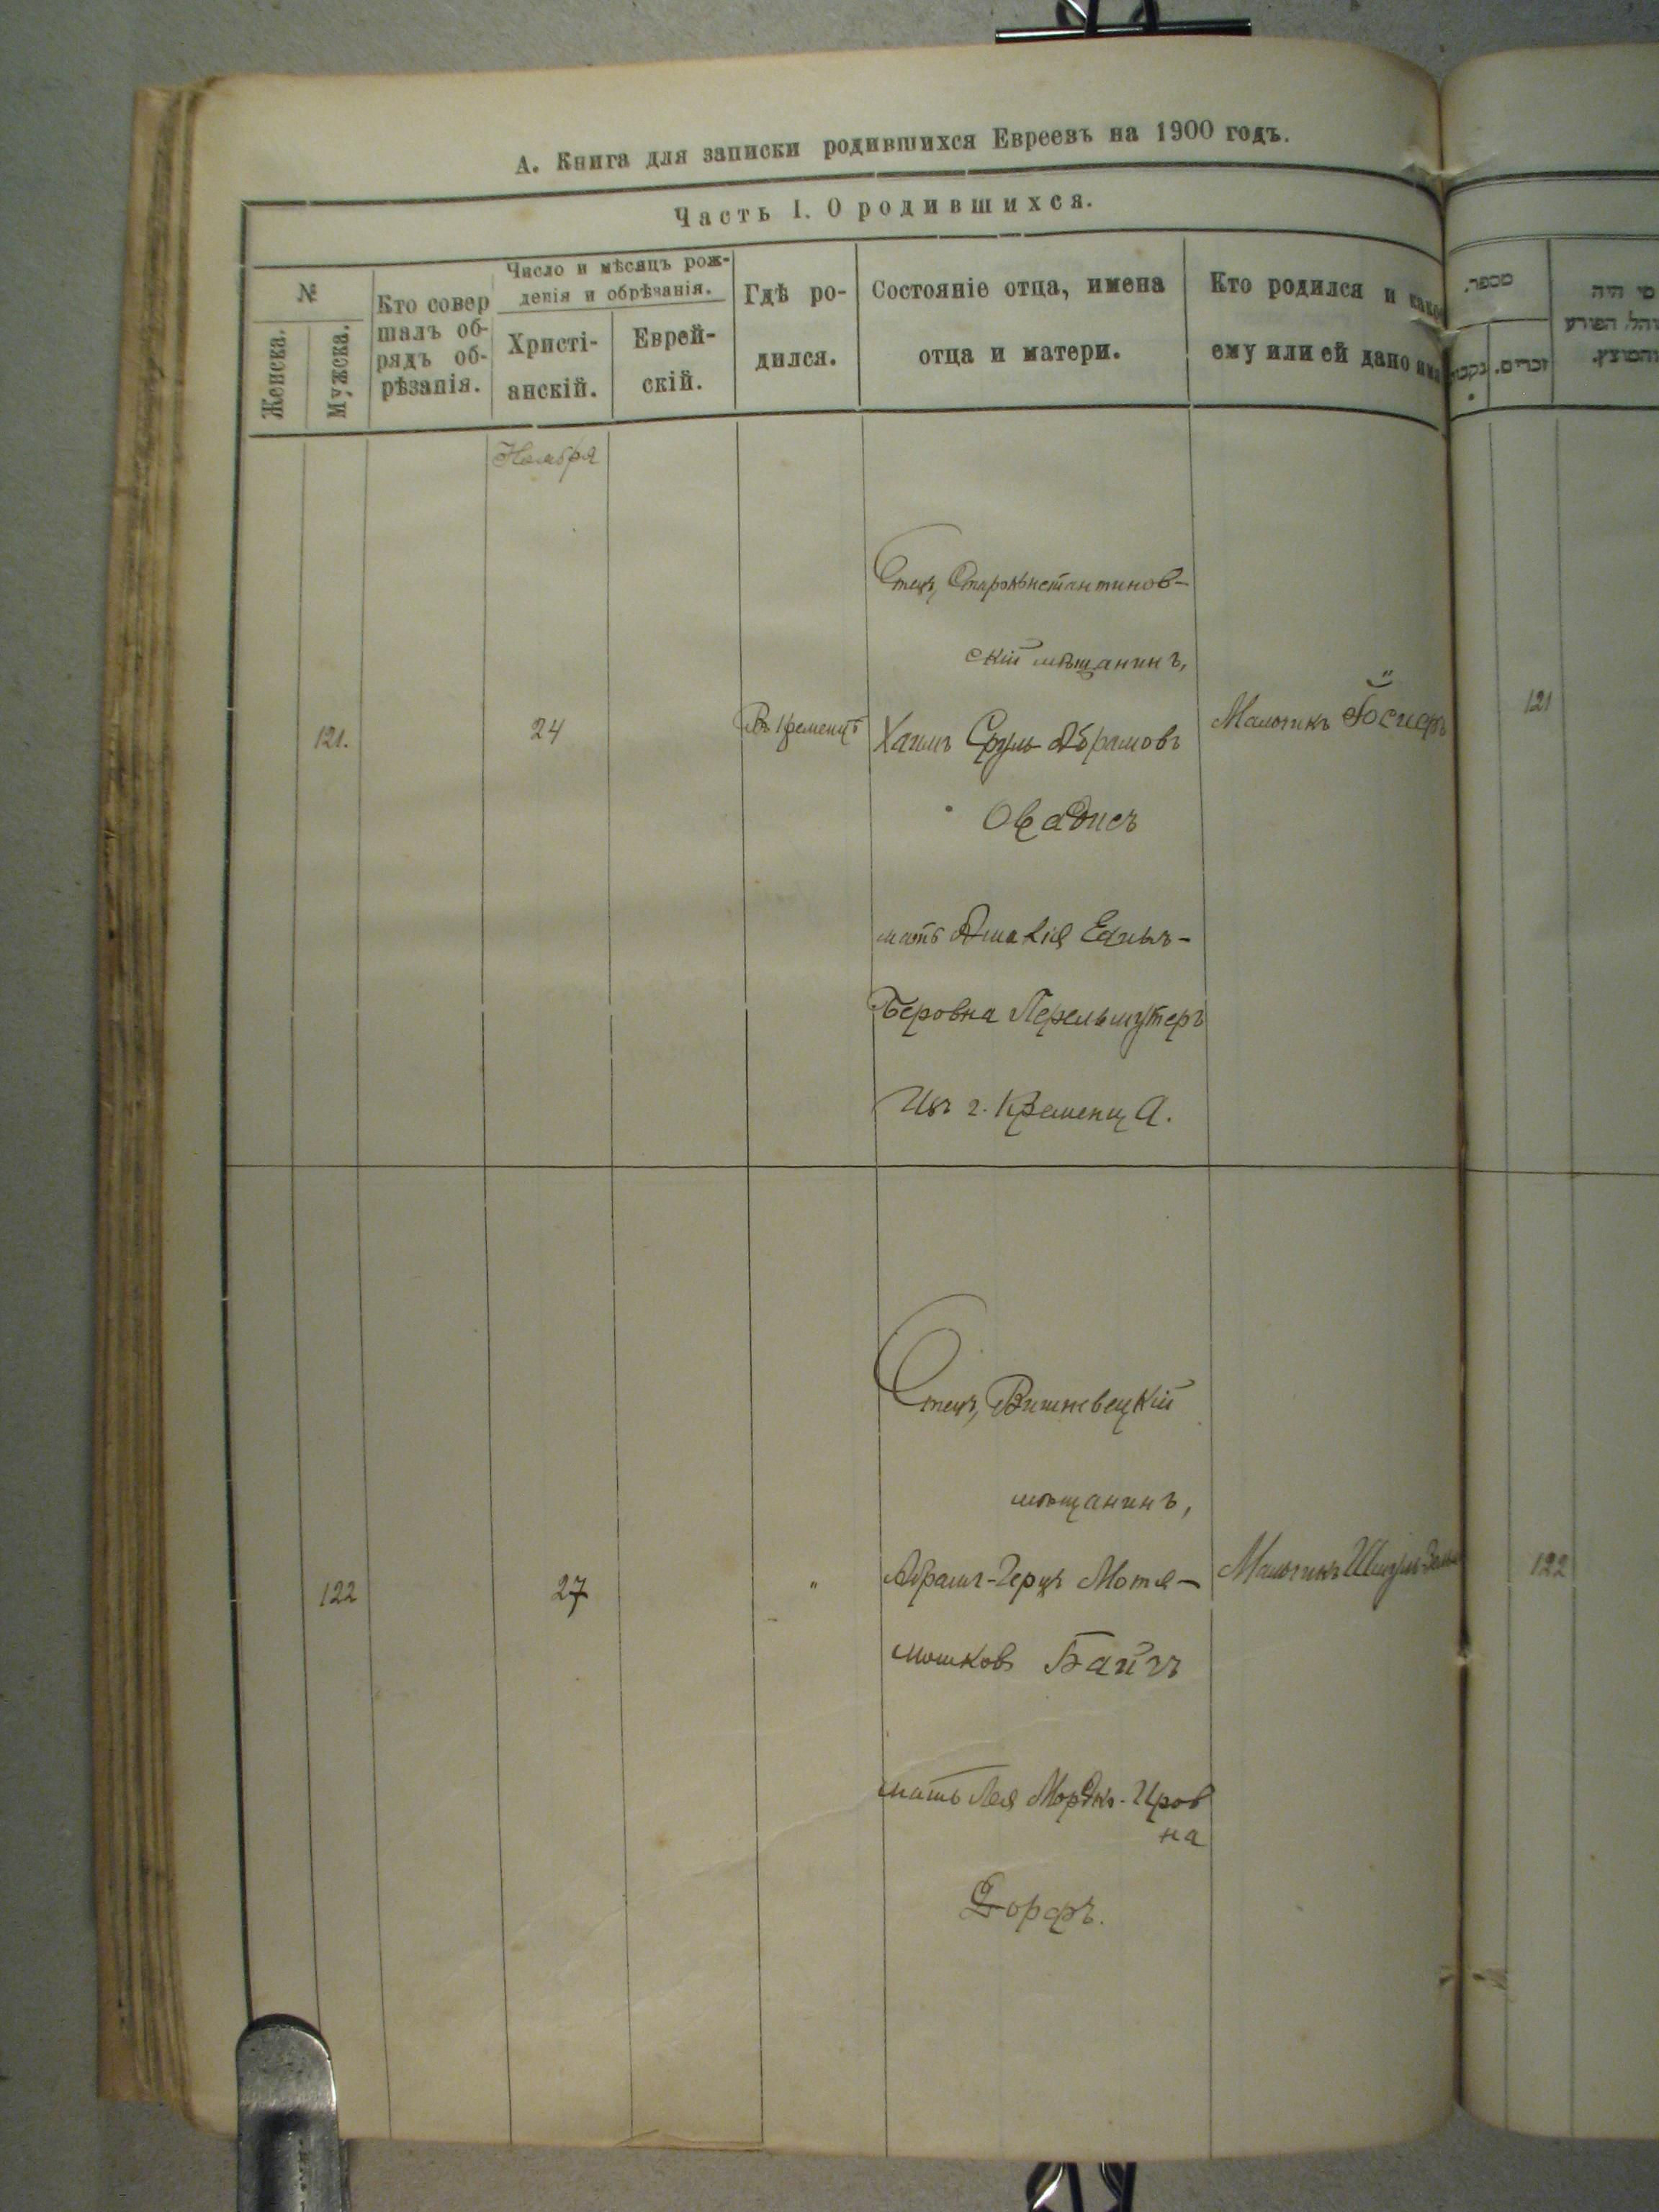 А. Книга для записки родившихся Евреевъ на 1900 годъ.
Часть I. О родившихся.
№
Женска.
Мужска.
Кто совер
шалъ об-
рядъ об-
рѣзанія.
Число и мѣсяцъ рож-
денія и обрѣзанія.
Христі-
анскій.
Еврей-
скій.
Гдѣ ро-
дился.
Состояніе отца, имена
отца и матери.
Кто родился и како
ему или ей дано има
מספר.
נקבו
זכרים.
מי היה
והמוצץ.
Ноября
121.
24
Въ Кременцѣ
Отецъ, Староконстантинов-
скій мѣщанинъ,
Хаимъ Сруль Абрамовъ
Овадисъ
мать Еликъ-
Беровна Перельмутеръ
Изъ г. Кременца.
Мальчикъ Іосифъ
121
122
27
"
Отецъ, Вишневецкій
мѣщанинъ,
Абрамъ-Герцъ Мотя-
мошковъ Байзъ
мать Лея Мордко-Иров
на
Дорфъ.
Мальчикъ Шмуль-
122